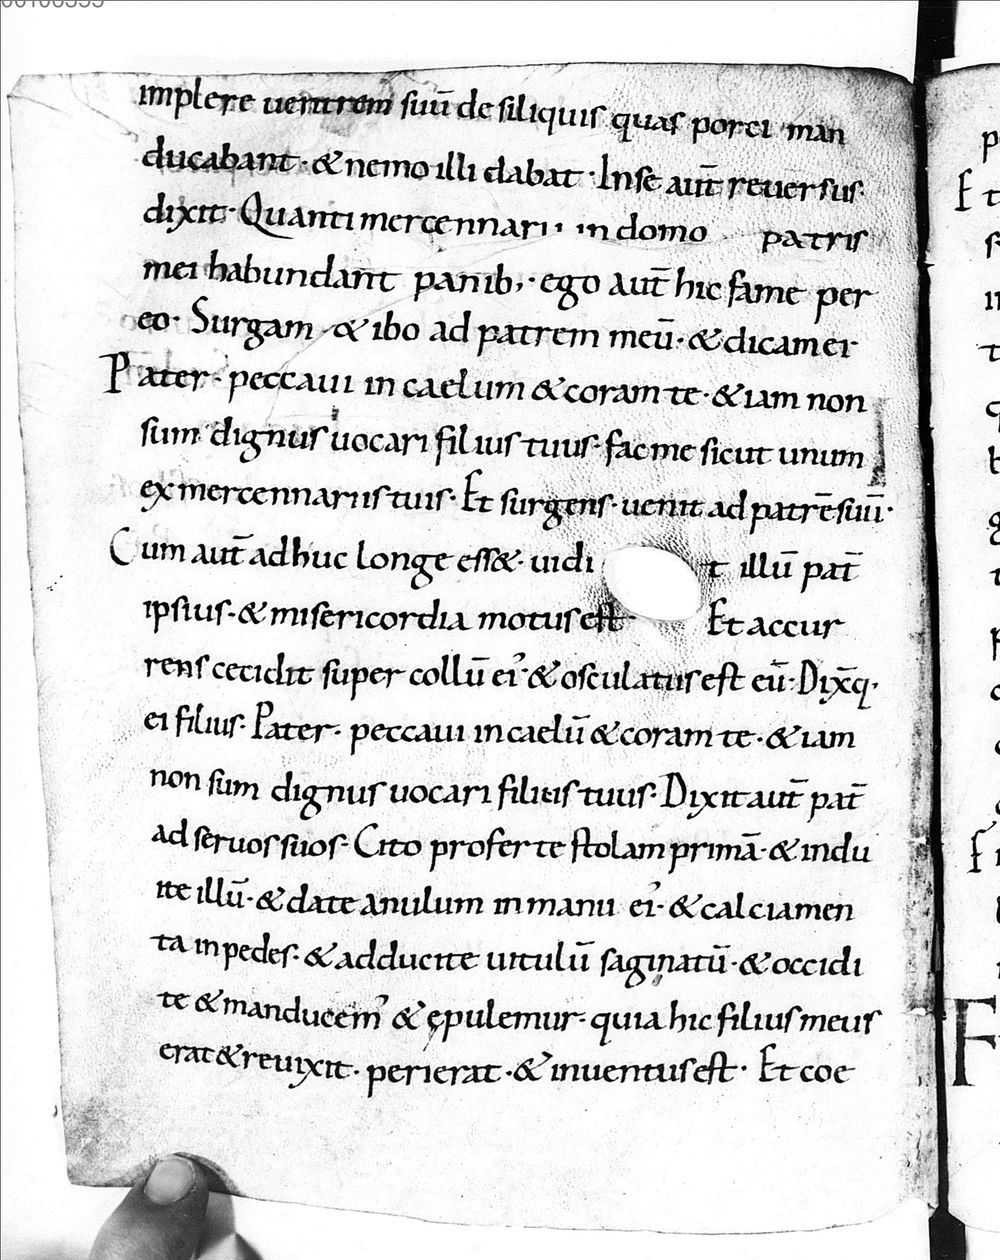 implere uentrem suū de siliquis quas porci man
ducabant · & nemo illi dabat · In se aut̄ reuersus·
dixit · Quanti mercennarii in domo patris
mei habundant panib; · ego aut̄ hic fame per
eo · Surgam & ibo ad patrem meū · & dicam ei
Pater · peccaui in caelum & coram te · & iam non
sum dignus uocari filius tuus · fac me sicut unum
ex mercennariis tuis · Et surgens · uenit ad patrē suū·
Cum aut̄ adhuc longe ess& · uidit illū pat̄
ipsius · & misericordia motus est · Et accur
rens cecidit super collū ei᾿ · & osculatus est eū · Dix̄q·
ei filius · Pater · peccaui in caelū & coram te · & iam
non sum dignus uocari filius tuus · Dixit aut̄ pat̄
ad seruos suos · Cito proferte stolam primā · & indu
ite illū · & date anulum in manu ei᾿ · & calciamen
ta in pedes · & adducite uitulū saginatū · & occidi
te & manducem᾿ & epulemur · quia hic filius meus
erat & reuixit · perierat · & inuentus est · Et coe